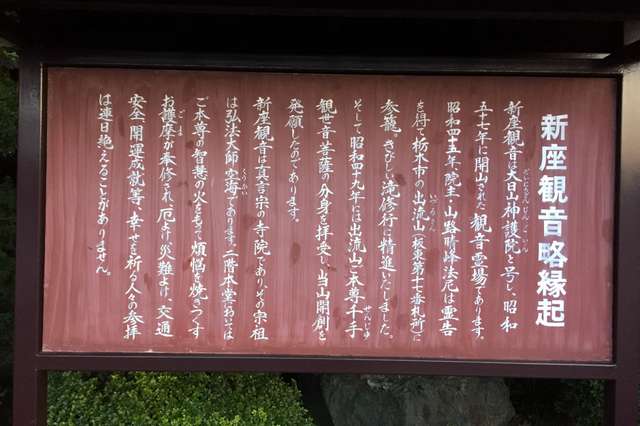 新座観音略縁起
新座観音は大日山神護院と号し、昭和
五十七年に開山された観音霊場であります。
昭和四十五年、院主・山路晴峰法尼は霊告
を得て栃木市の出流山(坂東第十七番札所)に
参籠、きびしい滝修行に精進いたしました。
そして昭和四十九年には出流山ご本尊千手
観世音菩薩の分身を拝受し、当山開創を
発願したのであります。
新座観音は真言宗の寺院であり、その宗祖
は弘法大師・空海であります。二階本堂においては
ご本尊の智慧の火をもって煩悩を焼きつくす
お護摩が奉修され、厄よけ、災難よけ、交通
安全、開運成就等、幸せを祈る人々の参拝
は連日絶えることがありません。